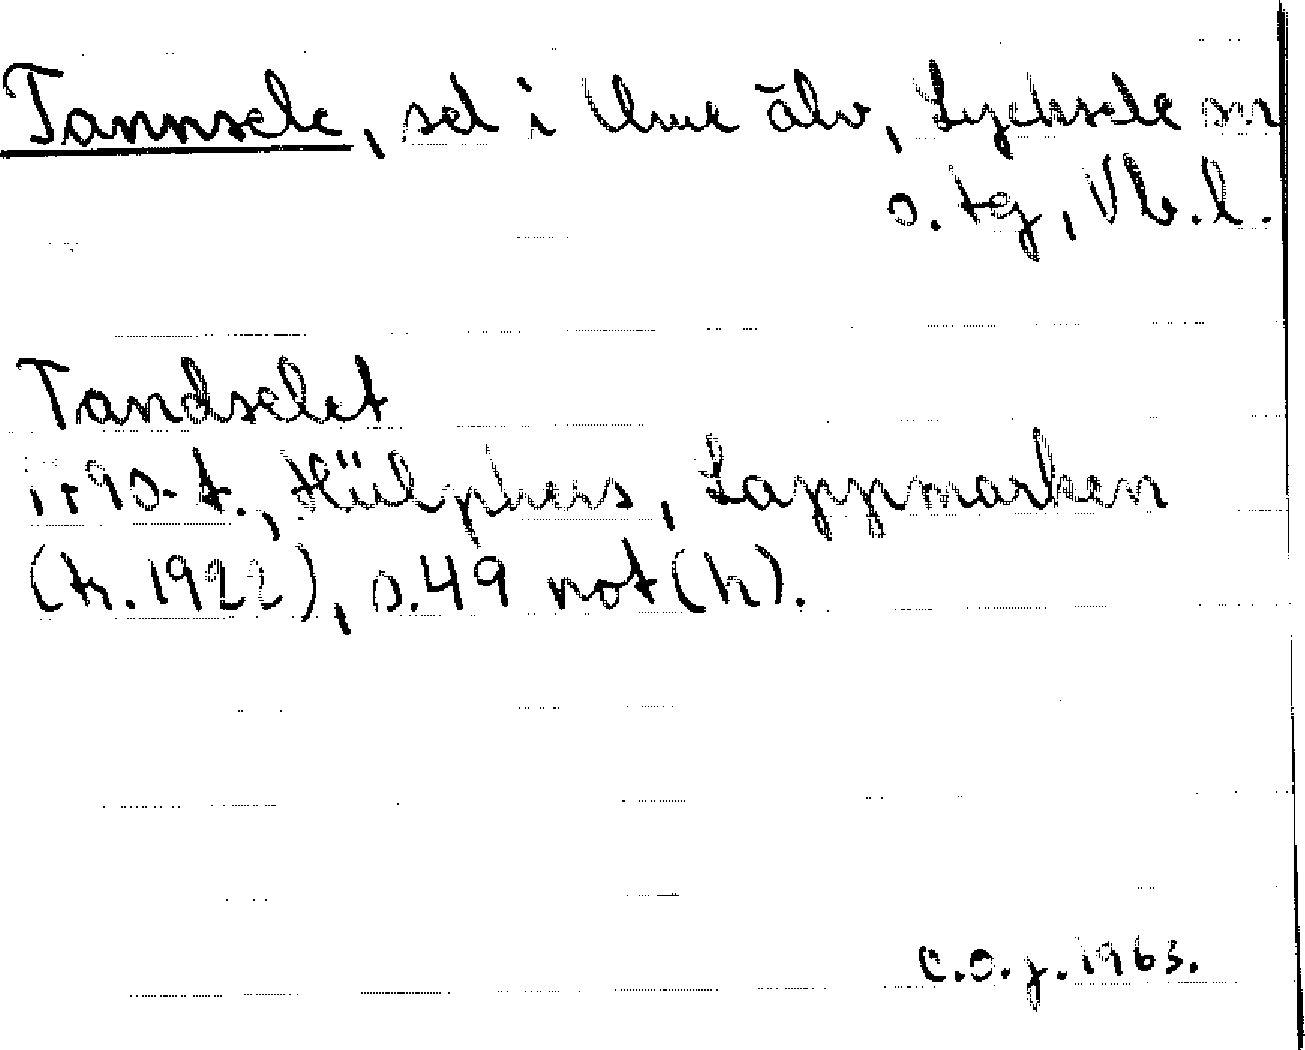 Tannsele, sel i Ume älv, Lycksele sn
o. tg, Vb.l.
Tandselet
1790-t., Hülphers, Lappmarken
(tr. 1922), s. 49 not (h).
C.O.J. 1963.